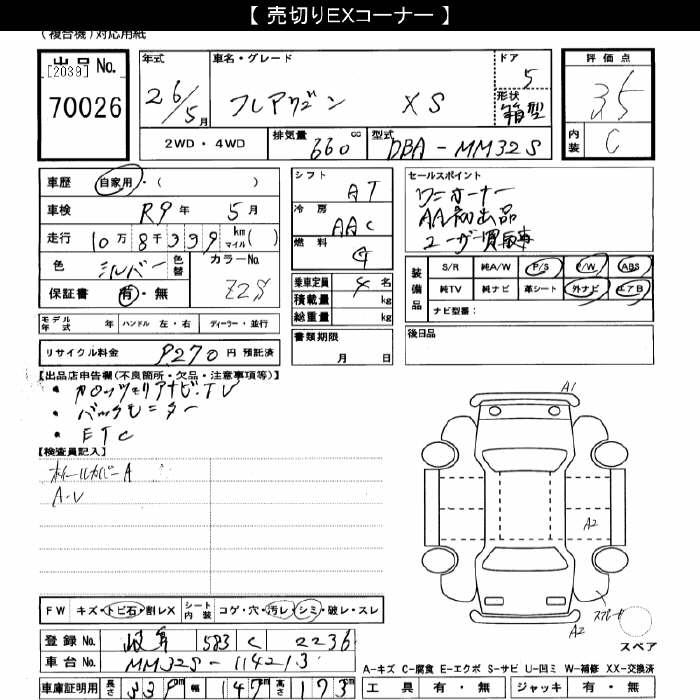 【 売切りEXコーナー 】
(複合機)対応用紙
出品 No. [2039] 70026
年式 26/5月
車名・グレード フレアワゴン XS
ドア 5
形状 箱型
評価点 3.5
内装 C
2WD・4WD
排気量 660 cc
型式 DBA-MM32S
車歴 自家用・( )
車検 R9年 5月
走行 10万8千339 km マイル( )
色 シルバー 色替
カラーNo. Z2S
保証書 有・無
シフト AT
冷房 AAC
燃料
乗車定員 4名
積載量 kg
総重量 kg
セールスポイント
ワンオーナー
AA初出品
ユーザー買取車
装備品 S/R 純A/W P/S P/W ABS
純TV 純ナビ 革シート 外ナビ エアB
ナビ型番:
モデル年式 年 ハンドル 左・右 ディーラー・並行
リサイクル料金 9270 円 預託済
書類期限 月 日
後日品
【出品店申告欄(不良箇所・欠品・注意事項等)】
・カロッツェリアナビ・TV
・バックモニター
・ETC
【検査員記入】
ホイールカバーA
A・U
A1
A2
A2
スペア
FW キズ・トビ石・割レX シート内装 コゲ・穴・汚レ・シミ・破レ・スレ
登録 No. 岐阜 583 2236
車台 No. MM32S-114213
車庫証明用 長さ 339cm 幅 147cm 高さ 173cm
A-キズ C-腐食 E-エクボ S-サビ U-凹ミ W-補修 XX-交換済
工具 有・無 ジャッキ 有・無